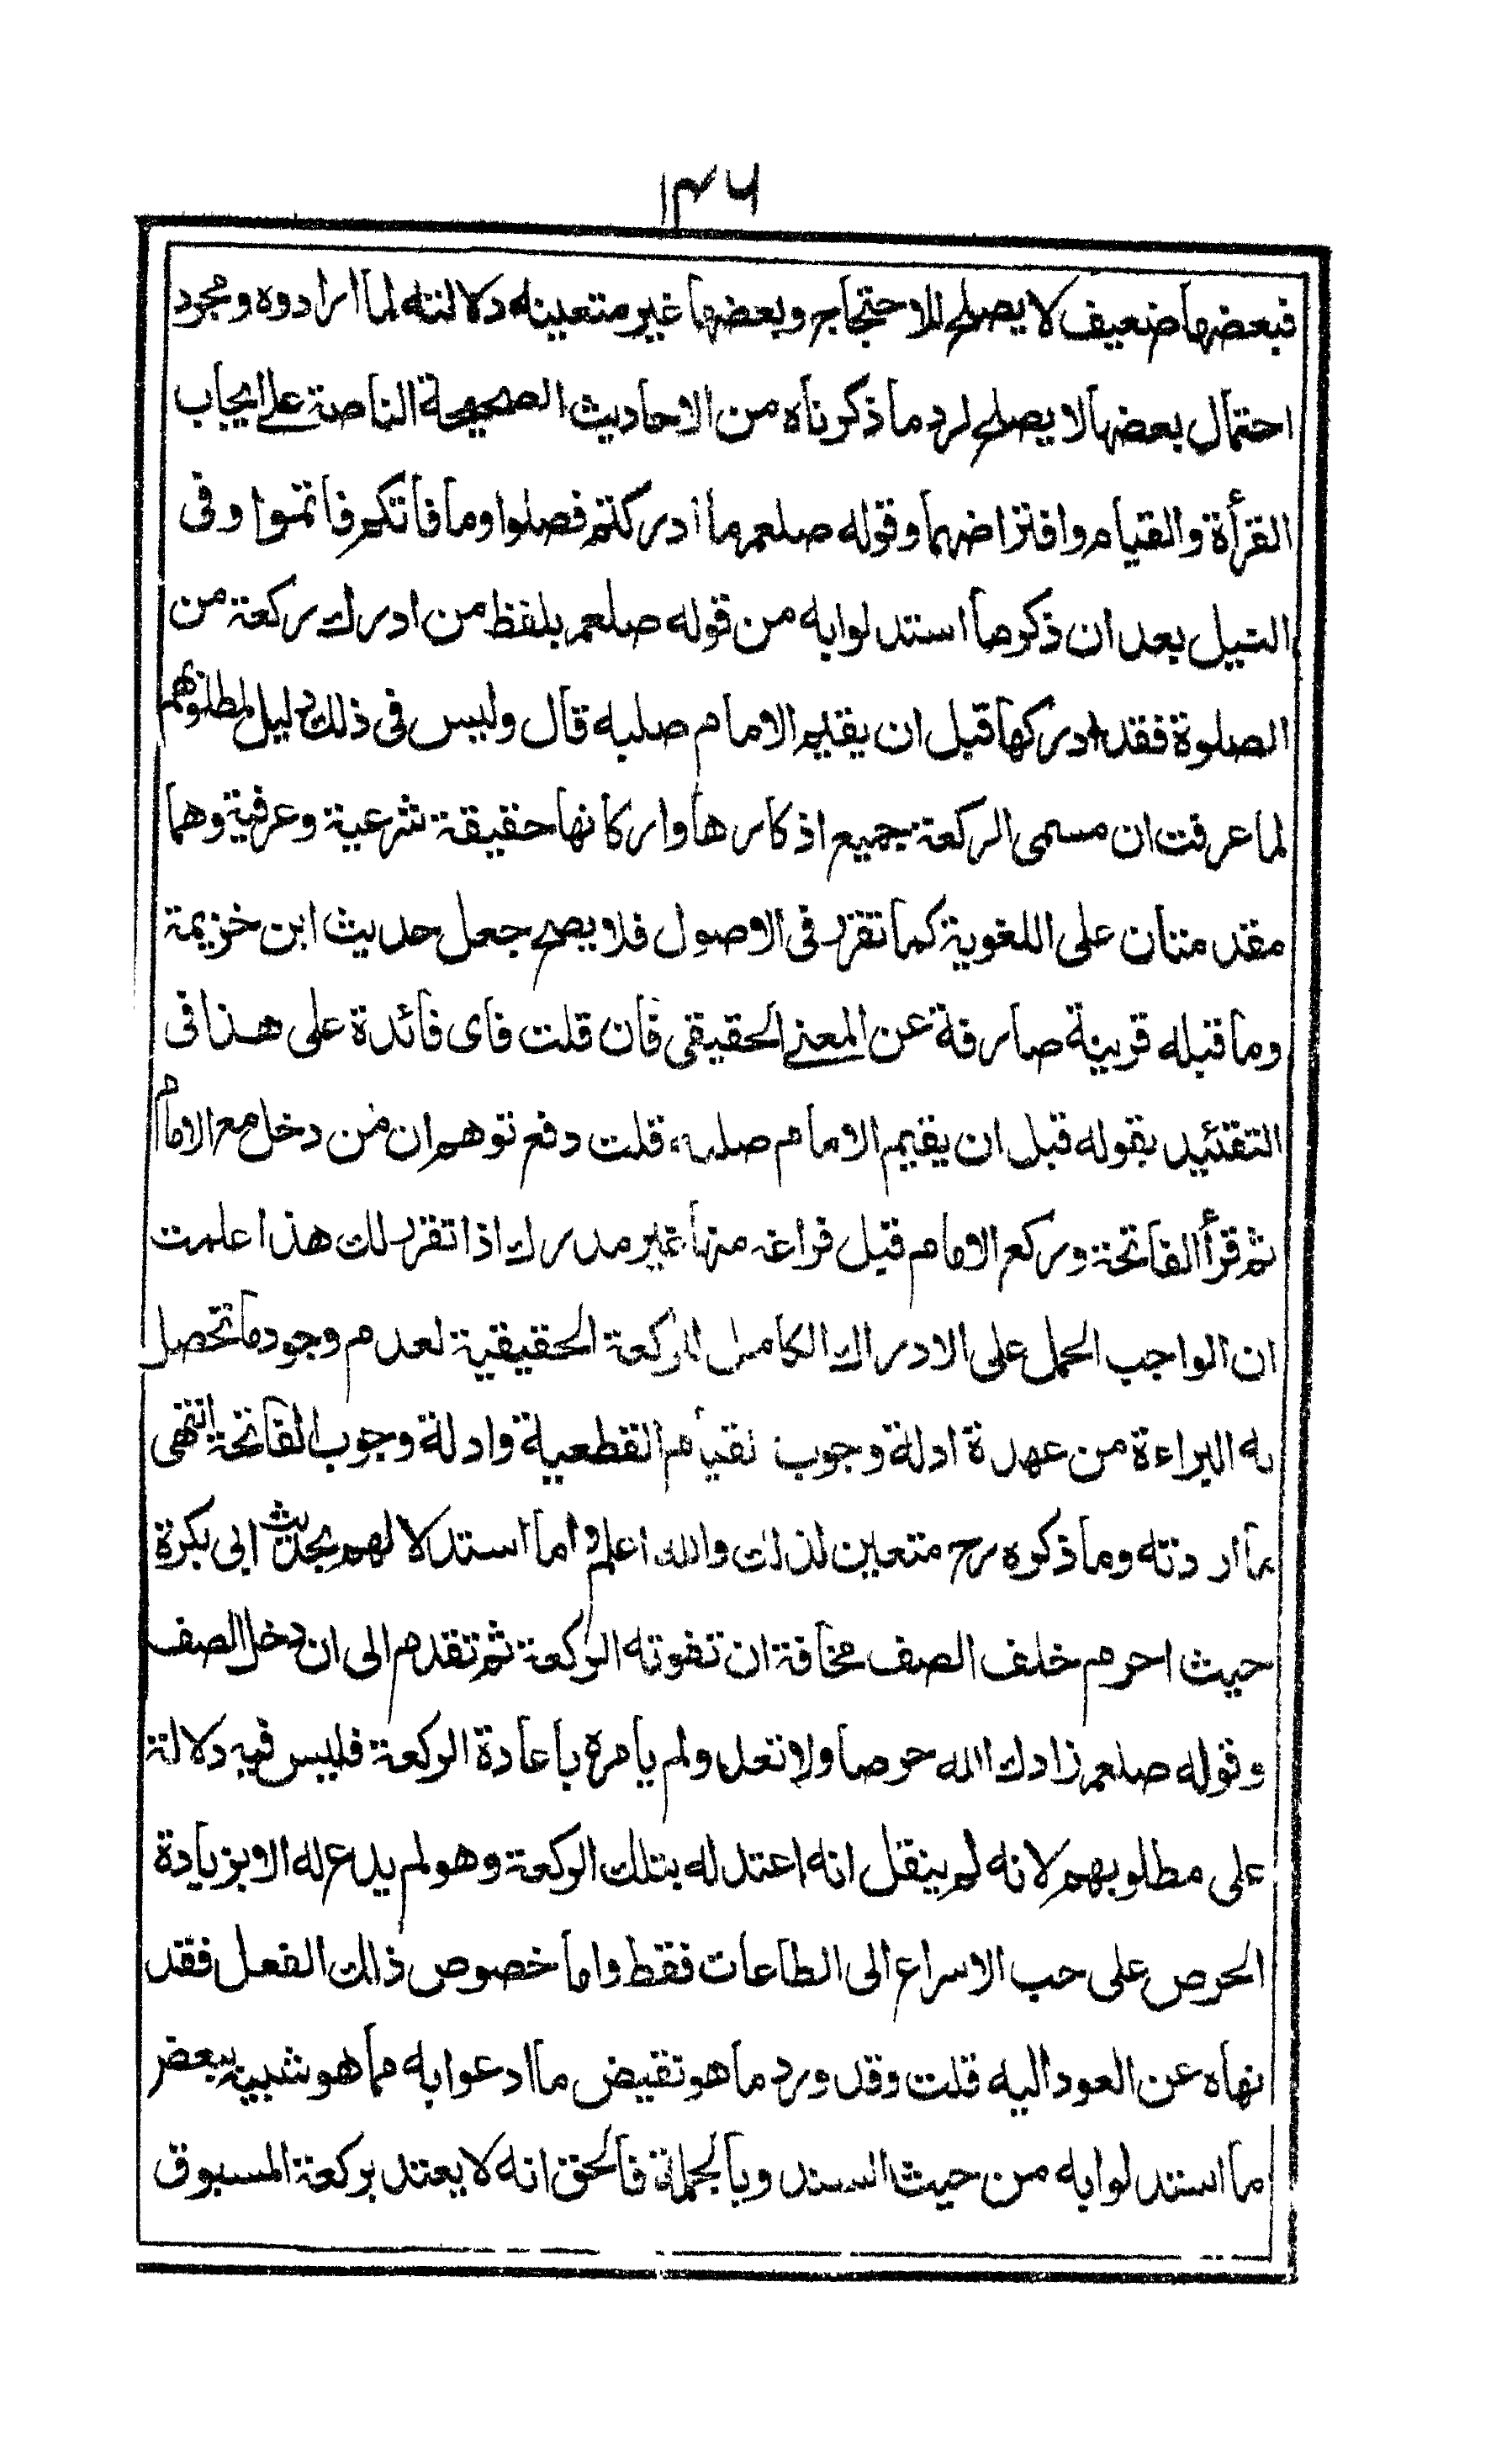 ۱۴۶
فبعضها ضعيف لا يصلح للاحتجاج وبعضها غير متعينه دلالته لما ارادوه ومجرد
احتمال بعضها لا يصلح لرد ما ذكرناه من الاحاديث الصحيحة الناصة على ايجاب
القرأة والقيام وافتراضهما وقوله صلعم ما ادركتم فصلوا وما فاتكم فاتموا وفى
النيل بعد ان ذكر ما استدلوا به من قوله صلعم بلفظ من ادرك ركعة من
الصلوة فقد ادركها قبل ان يقيم الامام صلبه قال وليس فى ذلك دليل لمطلوبهم
لما عرفت ان مسمى الركعة جميع اذكارها واركانها حقيقة شرعية وعرفية وهما
مقدمتان على اللغوية كما تقرر فى الاصول فلا يصح جعل حديث ابن خزيمة
وما قبله قرينة صارفة عن المعنى الحقيقى فان قلت فاى فائدة على هذا فى
التقئيد بقوله قبل ان يقيم الامام صلبه قلت دفع توهم ان من دخل مع الامام
ثم قرأ الفاتحة وركع الامام قبل فراغه منها غير مدرك اذا تقرر لك هذا علمت
ان الواجب الحمل على الادراك الكامل للركعة الحقيقية لعدم وجود ما تحصل
به البراءة من عهدة ادلة وجوب القيام القطعية وادلة وجوب الفاتحة انتهى
ما اردته وما ذكره رح متعين لذلك والله اعلم واما استدلالهم بحديث ابى بكرة
حيث احرم خلف الصف مخافة ان تفوته الركعة ثم تقدم الى ان دخل الصف
وقوله صلعم زادك الله حرصا ولا تعد ولم يامره باعادة الركعة فليس فيه دلالة
على مطلوبهم لانه لم ينقل انه اعتد له بتلك الركعة وهو لم يدع له الا بزيادة
الحرص على حب الاسراع الى الطاعات فقط واما خصوص ذلك الفعل فقد
نهاه عن العود اليه قلت وقد ورد ما هو نقيض ما ادعوا به مما هو شبيه ببعض
ما استدلوا به من حيث السند وبالجملة فالحق انه لا يعتد بركعة المسبوق